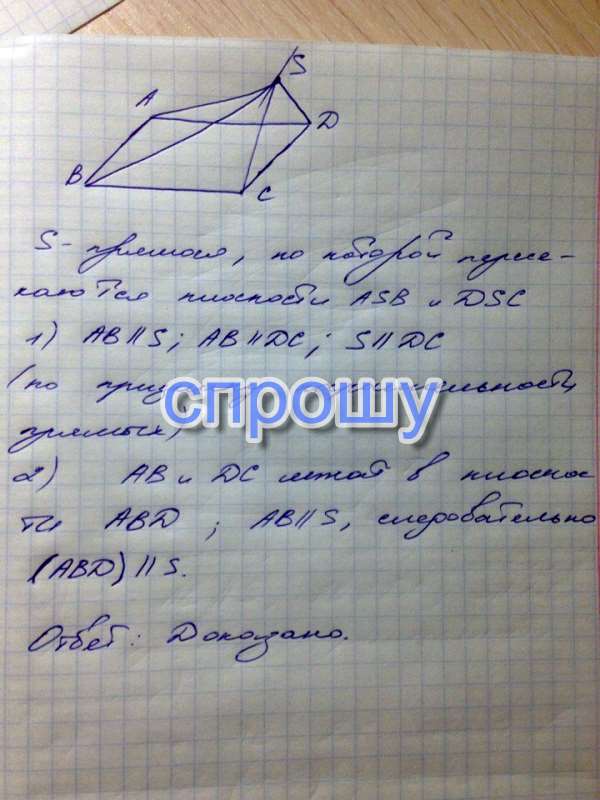 S
A
D
B
C
S - прямая, по которой пересе-
каются плоскости ASB и DSC
1) AB || S; AB || DC; S || DC
(по
спрошу
прямых)
2) AB и DC лежат в плоскос
ти ABD ; AB || S, следовательно
(ABD) || S.
Ответ: Доказано.